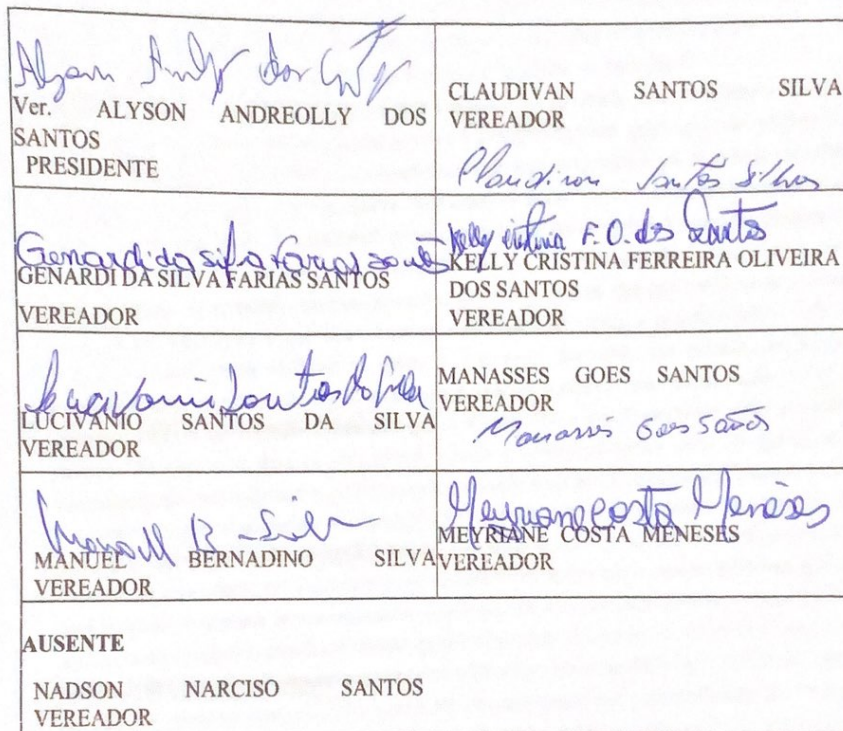 Ver. ALYSON ANDREOLLY DOS
SANTOS
PRESIDENTE
CLAUDIVAN SANTOS SILVA
VEREADOR
Claudivan Santos Silva
Genardi da silva Farias santos
GENARDI DA SILVA FARIAS SANTOS
VEREADOR
Kelly cristina F. O. dos Santos
KELLY CRISTINA FERREIRA OLIVEIRA
DOS SANTOS
VEREADOR
Lucivanio Santos da Silva
LUCIVANIO SANTOS DA SILVA
VEREADOR
MANASSES GOES SANTOS
VEREADOR
Manassés Goes Santos
Manuel B Silva
MANUEL BERNADINO SILVA
VEREADOR
Meyriane Costa Menêses
MEYRIANE COSTA MENESES
VEREADOR
AUSENTE
NADSON NARCISO SANTOS
VEREADOR